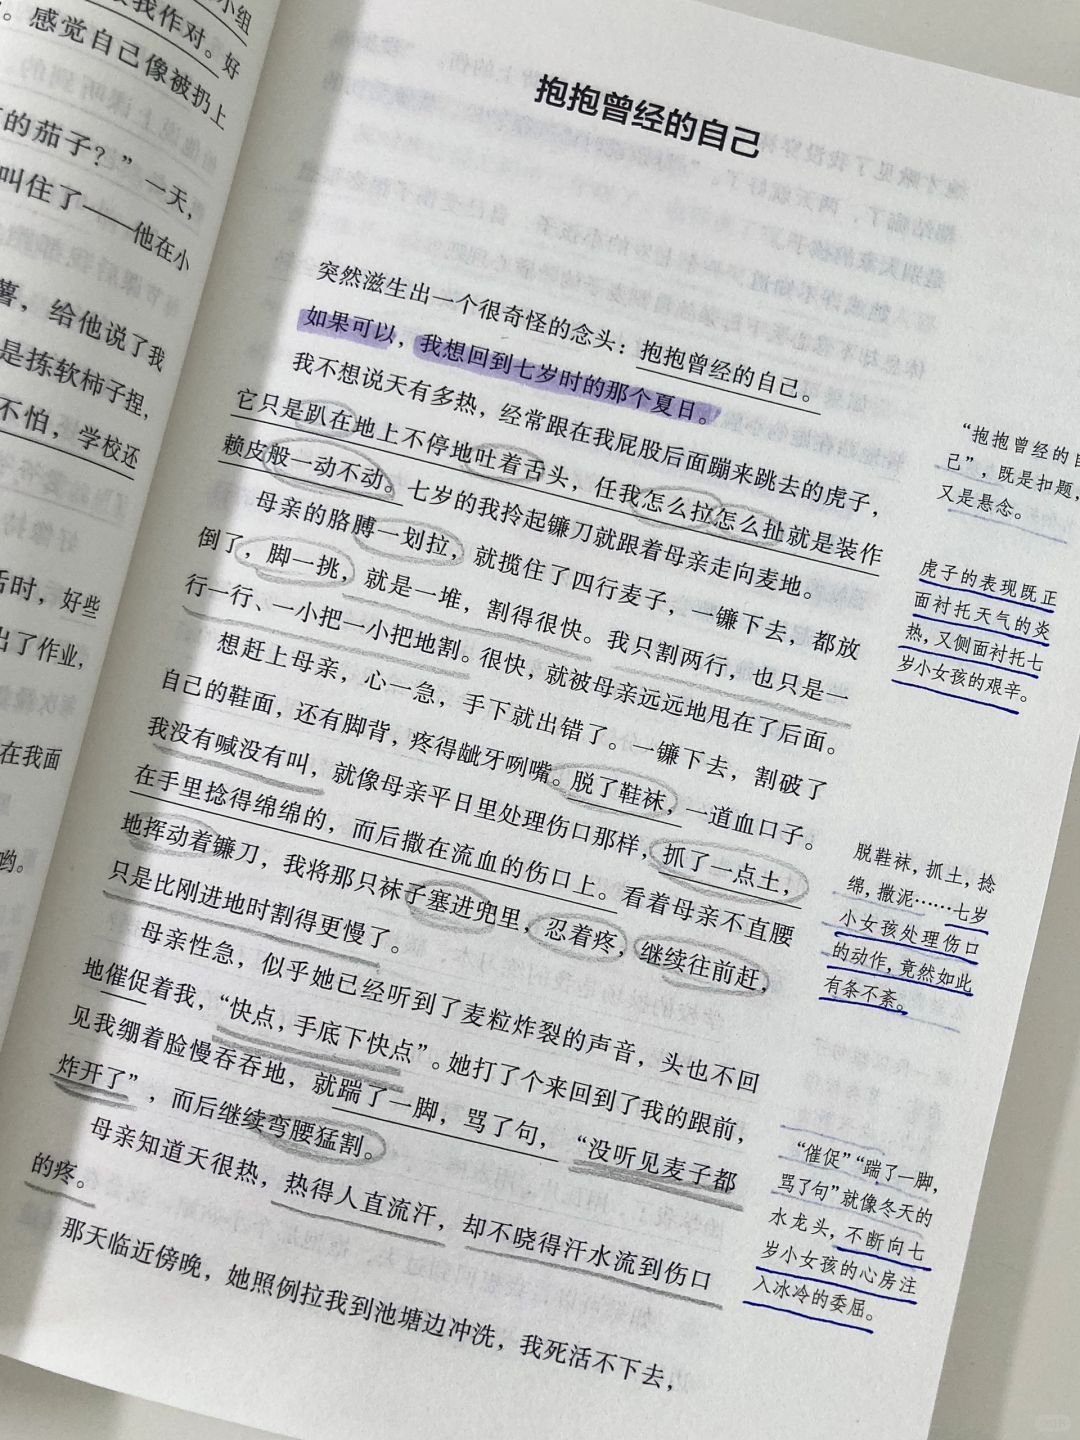 小组
我作对。好
。感觉自己像被扔上
的茄子？”一天，
叫住了——他在小
薯，给他说了我
是拣软柿子捏，
不怕，学校还
活时，好些
出了作业，
在我面
哟。
抱抱曾经的自己
突然滋生出一个很奇怪的念头：抱抱曾经的自己。
如果可以，我想回到七岁时的那个夏日。
我不想说天有多热，经常跟在我屁股后面蹦来跳去的虎子，
它只是趴在地上不停地吐着舌头，任我怎么拉怎么扯就是装作
赖皮般一动不动。七岁的我拎起镰刀就跟着母亲走向麦地。
母亲的胳膊一划拉，就揽住了四行麦子，一镰下去，都放
倒了，脚一挑，就是一堆，割得很快。我只割两行，也只是一
行一行、一小把一小把地割。很快，就被母亲远远地甩在了后面。
想赶上母亲，心一急，手下就出错了。一镰下去，割破了
自己的鞋面，还有脚背，疼得龇牙咧嘴。脱了鞋袜，一道血口子。
我没有喊没有叫，就像母亲平日里处理伤口那样，抓了一点土，
在手里捻得绵绵的，而后撒在流血的伤口上。看着母亲不直腰
地挥动着镰刀，我将那只袜子塞进兜里，忍着疼，继续往前赶，
只是比刚进地时割得更慢了。
母亲性急，似乎她已经听到了麦粒炸裂的声音，头也不回
地催促着我，“快点，手底下快点”。她打了个来回到了我的跟前，
见我绷着脸慢吞吞地，就踹了一脚，骂了句，“没听见麦子都
炸开了”，而后继续弯腰猛割。
母亲知道天很热，热得人直流汗，却不晓得汗水流到伤口
的疼。
那天临近傍晚，她照例拉我到池塘边冲洗，我死活不下去，
“抱抱曾经的自
己”，既是扣题，
又是悬念。
虎子的表现既正
面衬托天气的炎
热，又侧面衬托七
岁小女孩的艰辛。
脱鞋袜，抓土，捻
绵，撒泥……七岁
小女孩处理伤口
的动作，竟然如此
有条不紊。
“催促”“踹了一脚，
骂了句”就像冬天的
水龙头，不断向七
岁小女孩的心房注
入冰冷的委屈。